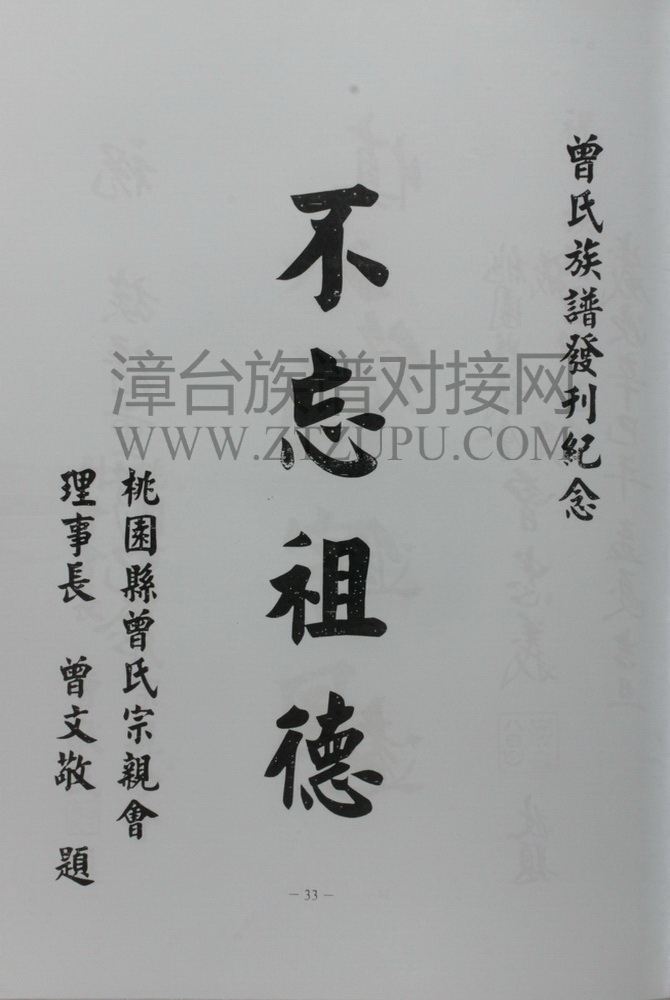 曾氏族譜發刊紀念
不忘祖德
桃園縣曾氏宗親會
理事長 曾文敬 題
漳台族谱对接网
WWW.ZTZUPU.COM
— 33 —